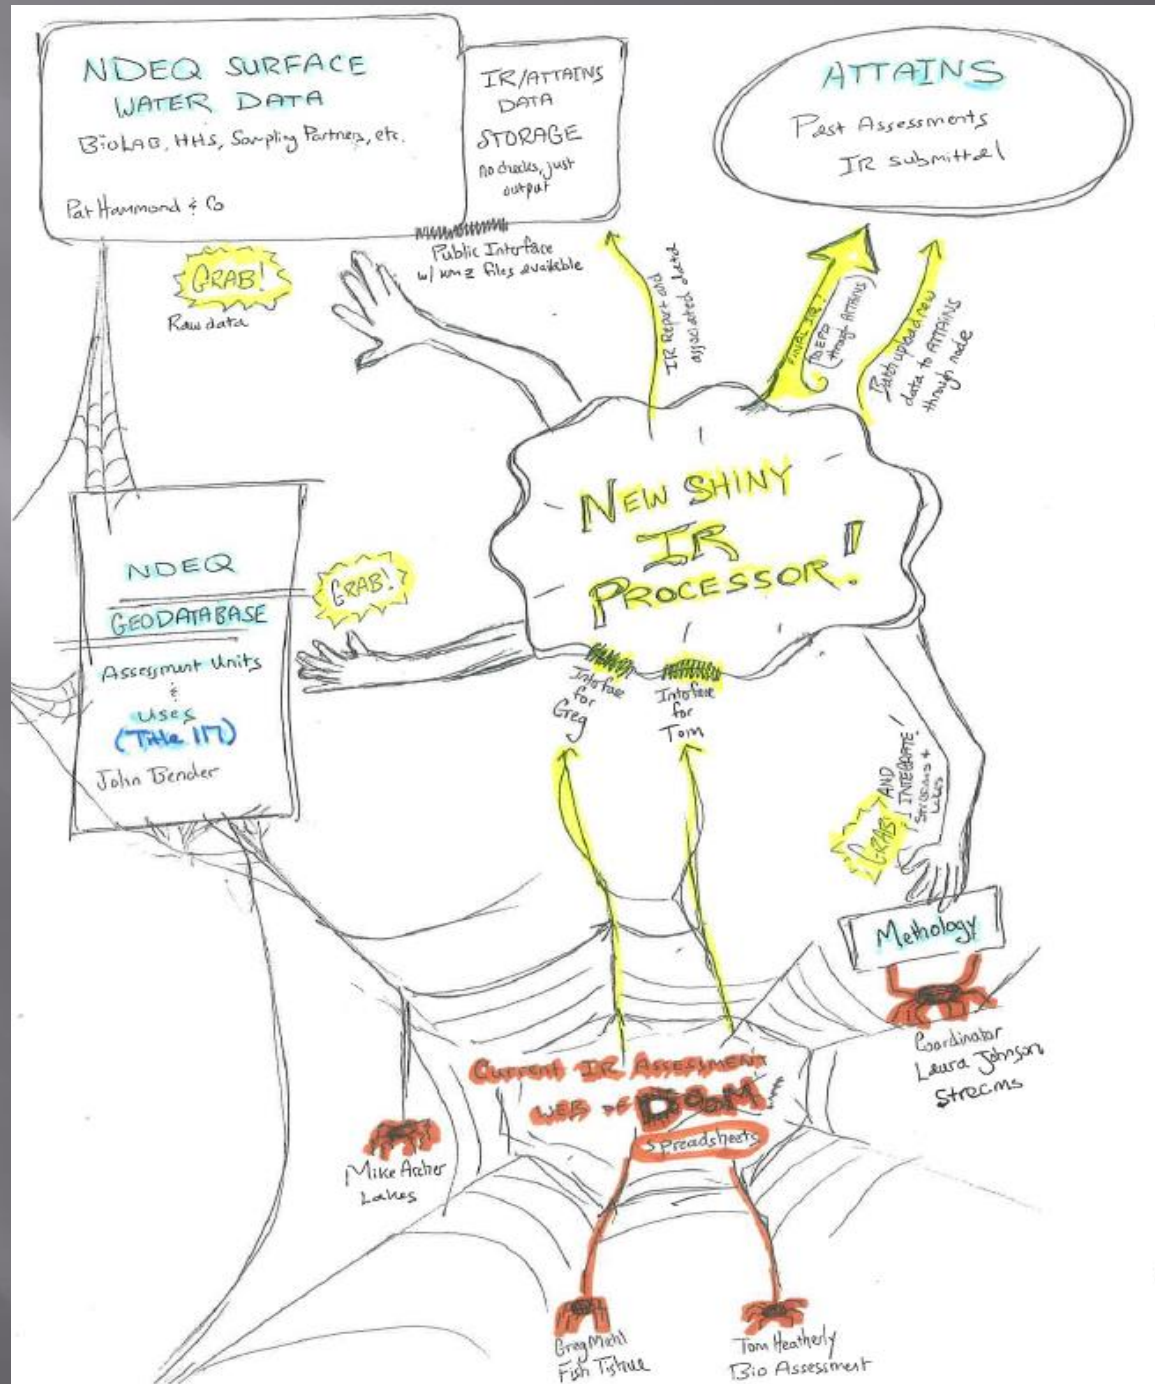 NDEQ SURFACE
WATER DATA
BioLAB, HHS, Sampling Partners, etc.
Pat Hammond & Co
IR/ATTAINS
DATA
STORAGE
no checks, just
output
Public Interface
w/ kmz files available
ATTAINS
Past Assessments
IR submittal
GRAB!
Raw data
IR Report and
associated data
FINAL IR!
to EPA
(through ATTAINS)
Batch upload new
data to ATTAINS
through node
NEW SHINY
IR
PROCESSOR!
NDEQ
GEODATABASE
Assessment Units
&
Uses
(Title 117)
John Bender
GRAB!
Interface
for
Greg
Interface
for
Tom
GRAB!
AND
INTEGRATE!
Streams +
Lakes
Methology
Coordinator
Laura Johnson
Streams
CURRENT IR ASSESSMENT
WEB OF DOOM
Spreadsheets
Mike Archer
Lakes
Greg Michl
Fish Tishue
Tom Heatherly
Bio Assessment